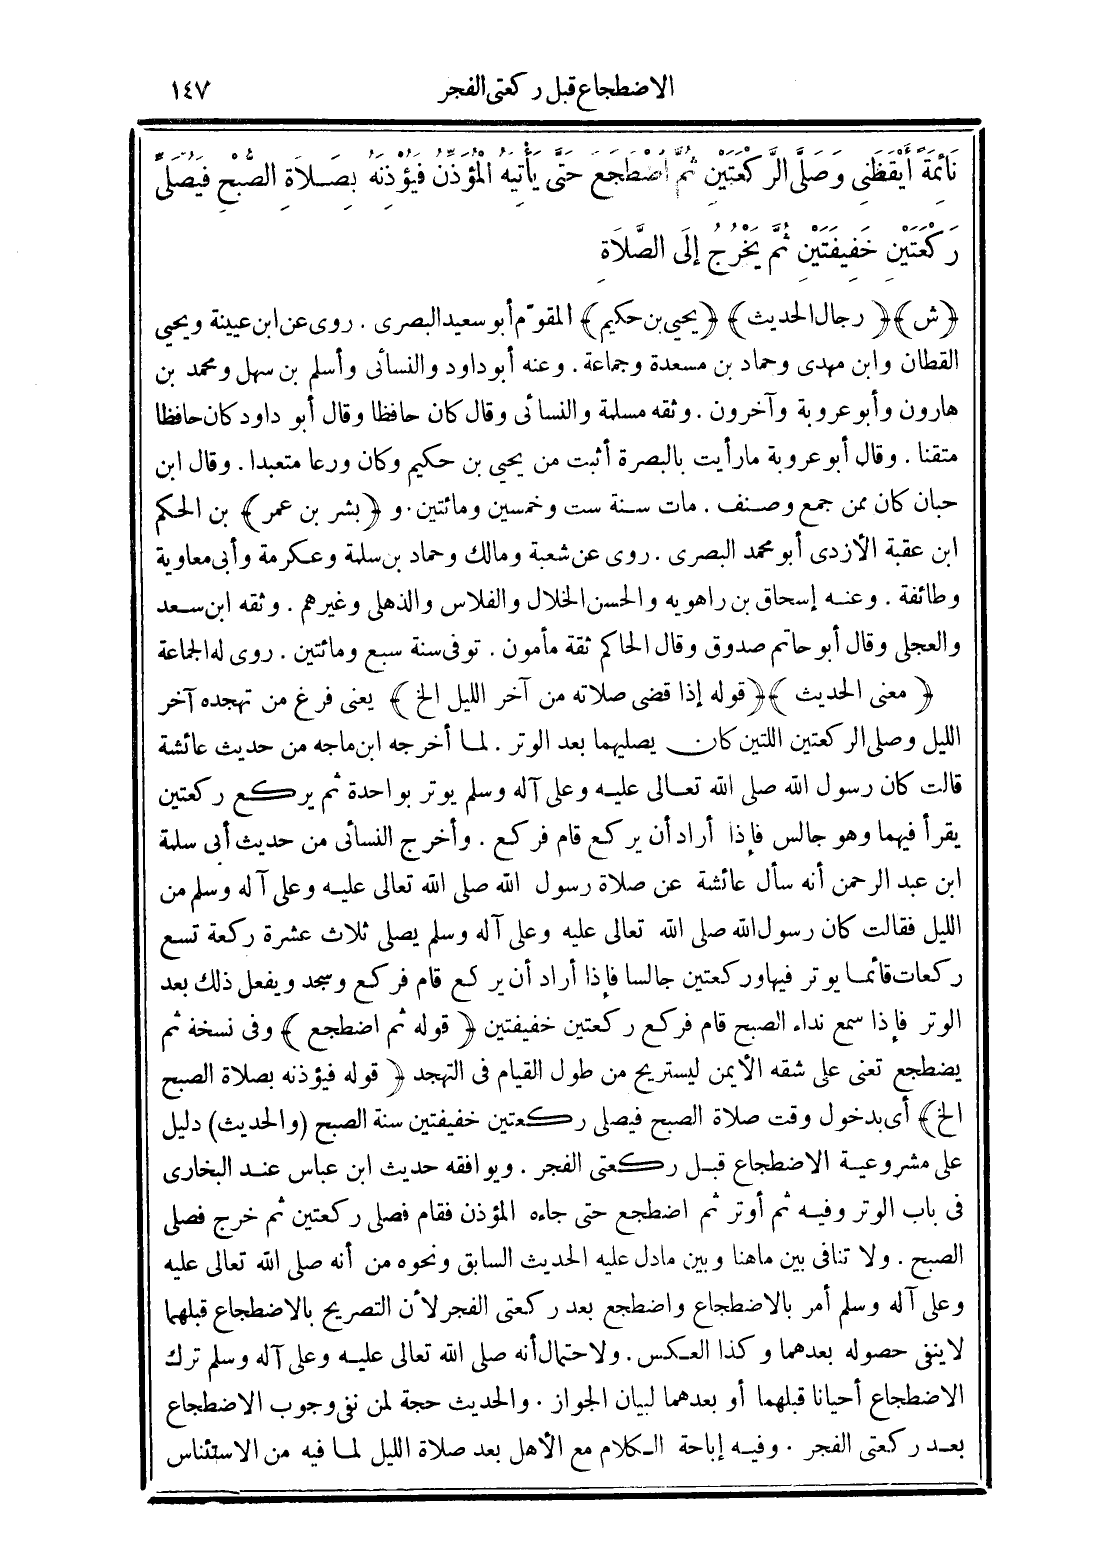 الاضطجاع قبل ركعتى الفجر ١٤٧
نَائِمَةً أَيْقَظَنِى وَصَلَّى الرَّكْعَتَيْنِ ثُمَّ اضْطَجَعَ حَتَّى يَأْتِيَهُ الْمُؤَذِّنُ فَيُؤْذِنَهُ بِصَلَاةِ الصُّبْحِ فَيُصَلِّىَ
رَكْعَتَيْنِ خَفِيفَتَيْنِ ثُمَّ يَخْرُجُ إِلَى الصَّلَاةِ
﴿ش﴾ ﴿رجال الحديث﴾ ﴿يحيى بن حكيم﴾ المقوّم أبو سعيد البصرى . روى عن ابن عيينة ويحيى
القطان وابن مهدى وحماد بن مسعدة وجماعة . وعنه أبو داود والنسائى وأسلم بن سهل ومحمد بن
هارون وأبو عروبة وآخرون . وثقه مسلمة والنسائى وقال كان حافظا وقال أبو داود كان حافظا
متقنا . وقال أبو عروبة مارأيت بالبصرة أثبت من يحيى بن حكيم وكان ورعا متعبدا . وقال ابن
حبان كان ممن جمع وصنف . مات سنة ست وخمسين ومائتين . و ﴿بشر بن عمر﴾ بن الحكم
ابن عقبة الأزدى أبو محمد البصرى . روى عن شعبة ومالك وحماد بن سلمة وعكرمة وأبى معاوية
وطائفة . وعنه إسحاق بن راهويه والحسن الخلال والفلاس والذهلى وغيرهم . وثقه ابن سعد
والعجلى وقال أبو حاتم صدوق وقال الحاكم ثقة مأمون . توفى سنة سبع ومائتين . روى له الجماعة
﴿معنى الحديث﴾ ﴿قوله إذا قضى صلاته من آخر الليل الخ﴾ يعنى فرغ من تهجده آخر
الليل وصلى الركعتين اللتين كان يصليهما بعد الوتر . لما أخرجه ابن ماجه من حديث عائشة
قالت كان رسول الله صلى الله تعالى عليه وعلى آله وسلم يوتر بواحدة ثم يركع ركعتين
يقرأ فيهما وهو جالس فإذا أراد أن يركع قام فركع . وأخرج النسائى من حديث أبى سلمة
ابن عبد الرحمن أنه سأل عائشة عن صلاة رسول الله صلى الله تعالى عليه وعلى آله وسلم من
الليل فقالت كان رسول الله صلى الله تعالى عليه وعلى آله وسلم يصلى ثلاث عشرة ركعة تسع
ركعات قائما يوتر فيها وركعتين جالسا فإذا أراد أن يركع قام فركع وسجد ويفعل ذلك بعد
الوتر فإذا سمع نداء الصبح قام فركع ركعتين خفيفتين ﴿قوله ثم اضطجع﴾ وفى نسخة ثم
يضطجع تعنى على شقه الأيمن ليستريح من طول القيام فى التهجد ﴿قوله فيؤذنه بصلاة الصبح
الخ﴾ أى بدخول وقت صلاة الصبح فيصلى ركعتين خفيفتين سنة الصبح (والحديث) دليل
على مشروعية الاضطجاع قبل ركعتى الفجر . ويوافقه حديث ابن عباس عند البخارى
فى باب الوتر وفيه ثم أوتر ثم اضطجع حتى جاءه المؤذن فقام فصلى ركعتين ثم خرج فصلى
الصبح . ولا تنافى بين ماهنا وبين مادل عليه الحديث السابق ونحوه من أنه صلى الله تعالى عليه
وعلى آله وسلم أمر بالاضطجاع واضطجع بعد ركعتى الفجر لأن التصريح بالاضطجاع قبلهما
لاينفى حصوله بعدهما وكذا العكس . ولاحتمال أنه صلى الله تعالى عليه وعلى آله وسلم ترك
الاضطجاع أحيانا قبلهما أو بعدهما لبيان الجواز . والحديث حجة لمن نفى وجوب الاضطجاع
بعد ركعتى الفجر . وفيه إباحة الكلام مع الأهل بعد صلاة الليل لما فيه من الاستئناس